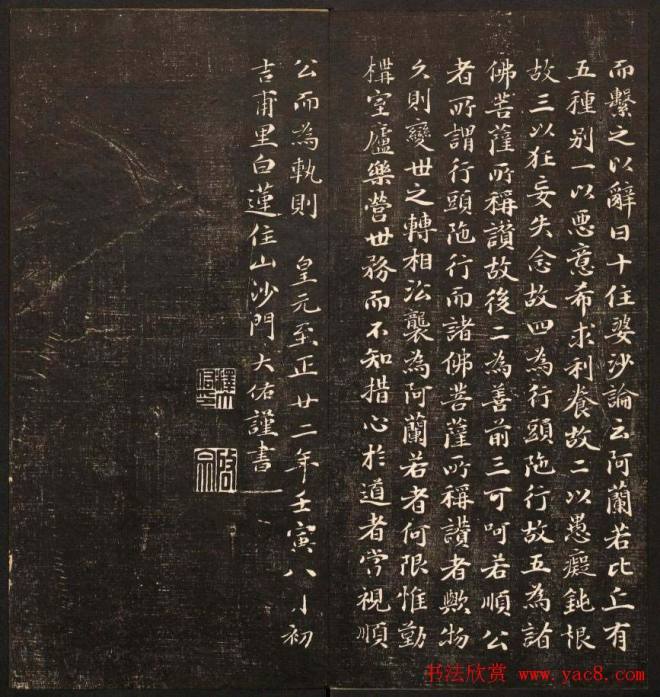 而繫之以辭曰十住婆沙論云阿蘭若比丘有
五種别一以悪意希求利養故二以愚癡鈍根
故三以狂妄失念故四為行頭陁行故五為諸
佛菩薩所稱讃故後二為善前三可呵若順公
者所謂行頭陁行而諸佛菩薩所稱讃者歟物
久則變世之轉相沿襲為阿蘭若者何限惟勤
構室廬樂營世務而不知措心於道者甞視順
公而為軌則 皇元至正廿二年壬寅八月初
吉甫里白蓮住山沙門大佑謹書
书法欣赏 www.yac8.com